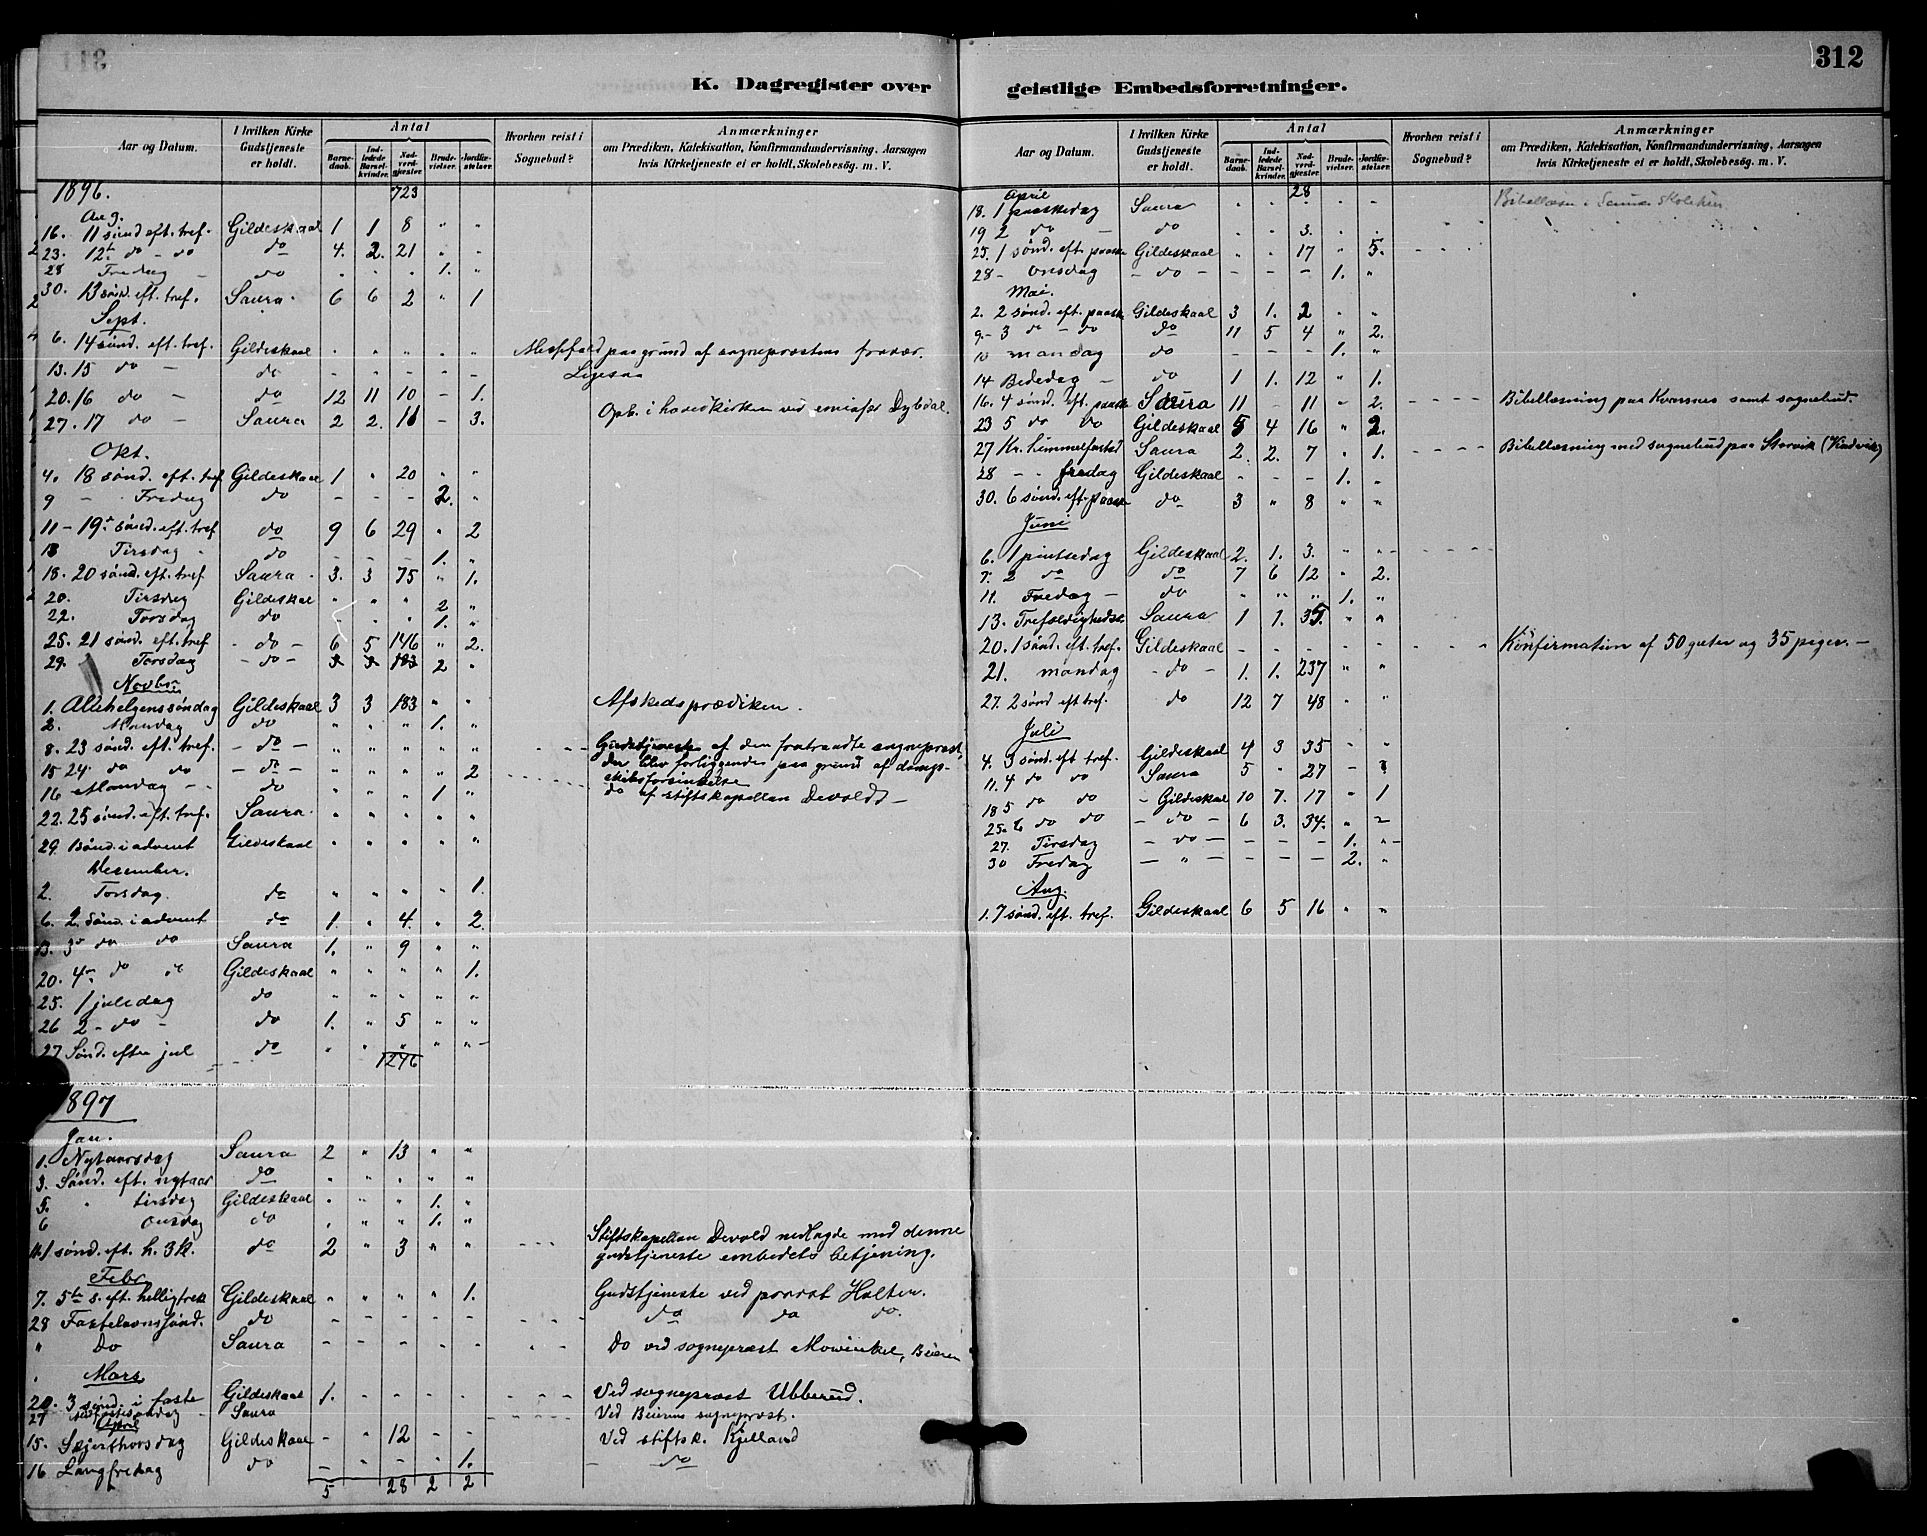 312
K. Dagregister over geistlige Embedsforretninger.
Aar og Datum. | I hvilken Kirke Gudstjeneste er holdt. | Antal | Barne-daab. | Ind-ledede Barsel-kvinder. | Nad-verd-gjester. | Brude-vielser. | Jordfæ-stelser. | Hvorhen reist i Sognebud? | Anmærkninger om Prædiken, Katekisation, Konfirmandundervisning, Aarsagen hvis Kirketjeneste ei er holdt, Skolebesøg. m. V.
1896. 723
Aug.
16. 11 sønd eft. tref. Gildeskaal 1 1 8 " "
23. 12te do - do do 4. 2. 21 " "
28 Fredag - do " " " 1. "
30. 13 sønd. eft. tref. Saura. 6 6 2 " 1
Sept.
6. 14 sønd. eft. tref. Gildeskaal " " " " " Messefald paa grund af sogneprestens fravær.
13. 15 do - do - - - - - Ligesaa
20. 16 do - do 12 11 10 - 1.
27. 17 do - Saura 2 2. 11 - 3.
Okt.
4. 18 sønd. eft. tref Gildeskaal 1 " 20 " "
9 - Fredag do - - - 2. "
11 - 19de sønd. eft. tref do 9 6 29 " 2
13 Tirsdag do - - - 1. "
18. 20 sønd. eft. tref Saura 3. 3 75 " 1.
20. Tirsdag Gildeskal " " " 2 "
22. Torsdag do - " " 1. "
25. 21 sønd. eft. tref - do - 6 5 146 " 2.
29. Torsdag - do - 3 3 183 2 "
Novbr
1. Allehelgenssøndag Gildeskaal 3 3 183 " " Afskedsprædiken.
2. Mandag do " " " 1. "
8. 23 sønd. eft. tref. - do - " " " " " Gudstjeneste af den fratraadte sogneprest,
15 24. do do - do - " " " " 2 der blev forliggende paa grund af damp-
skibsforsinkelse
16 Mandag - - do " " " 1 " do af stiftskapellan Devold -
22. 25 sønd. eft. tref. Saura. " " " " "
29. 1 sønd. i advent Gildeskaal " " " " "
Desember.
2. Torsdag. do " " " " 1.
6. 2. sønd. i advent do 1. " 4. " 2.
13. 3de do do Saura 1. " 9 " "
20. 4de do Gildeskaal " " " " 1.
25. 1 juledag do " " " " "
26 2 - do - do 1. " 5 " "
27 Sønd. efter jul do " " " " "
1246
1897
Jan.
1. Nytaarsdag Saura 2 " 13 " "
3. Sønd. eft. nytaar do " " " " "
5. " tirsdag Gildeskaal " " " 1. "
6 onsdag do " " " 1. "
1 sønd. eft. h. 3k. do 2 " 3 " " Stiftskapellan Devold nedlagde med denne
gudstjeneste embedets betjening.
Febr
7. 5te s. eft. helligtrek Gildeskaal " " " " 1. Gudstjeneste ved provst Holter.
28 Fastelavnssønd. do - - - - - do do do.
" Do Saura - - - - - Do ved sogneprest Mowinkel, Beieren
Mars
20. 3 sønd. i faste Gildeskaal 1. - - - - Ved sogneprest Ubberud.
27 Saura Ved Beierens sogneprest.
April
15. Skjærthorsdag Gildeskaal - " 12 - - Ved stiftsk. Kjelland
16 Langfredag do - - - - 1. - do
5 28 2 2
Aar og Datum. | I hvilken Kirke Gudstjeneste er holdt. | Antal | Barne-daab. | Ind-ledede Barsel-kvinder. | Nad-verd-gjester. | Brude-vielser. | Jordfæ-stelser. | Hvorhen reist i Sognebud? | Anmærkninger om Prædiken, Katekisation, Konfirmandundervisning, Aarsagen hvis Kirketjeneste ei er holdt, Skolebesøg. m. V.
April 28
18. 1 paaskedag Saura " " " " "
19 2 do - do " " 3. " "
25. 1 sønd. eft. paaske Gildeskaal " " 17 " 5.
28 - onsdag - do - - - - 1. "
Mai.
2. 2 sønd. eft. paaske Gildeskaal 3 1. 2 " "
9 - 3 do - do do 11 5 4 " 2.
10 mandag do - - - 1. "
14 Bededag - do 1 1. 12 " 1.
16. 4 sønd. eft. paaske Saura 11 - 11 " 2. Bibellæsning paa Kvarsnes samt sognebud.
23 5 do do Gildeskaal 5 4 16 " 2.
27 Kr. himmelfartsd Saura 2. 2. 7 " 1. Bibellæsning med sognebud paa Storvik (Kindvik)
28 - " fredag Gildeskaal - - - 1. "
30. 6 sønd. eft. paaske do 3 " 8 " "
Juni
6. 1 pintsedag Gildeskaal 2. 1. 3. " "
7. 2 do do 7 6 12 " 2.
11. Fredag - do " " " 1. "
13. Trefoldighedss. Saura 1 1. 35. " "
20. 1 sønd. eft. tref. Gildeskaal - - - - - Konfirmation af 50 gutter og 35 piger. -
21. mandag - do - 1. 1. 237 " "
27. 2 sønd eft tref. do 12 7 48 " "
Juli
4. 3 sønd. eft tref. Gildeskaal 4 3 35 " "
11. 4 do do Saura 5 " 27 -
18 5 do do - Gildeskaal 10 7. 17 " 1
25. 6 do do - do - 6 3. 34. " -
27. Tirsdag - do - - - - 1. "
30 Fredag - " - - - - 2. "
Aug.
1. 7 sønd. eft. tref. Gildeskaal 6 5 16 " "